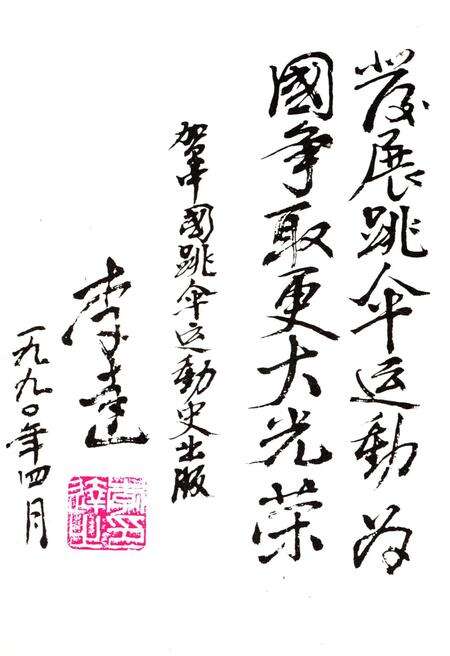 发展跳伞运动为
國争取更大光荣
贺中國跳伞运動史出版
李達
一九九〇年四月